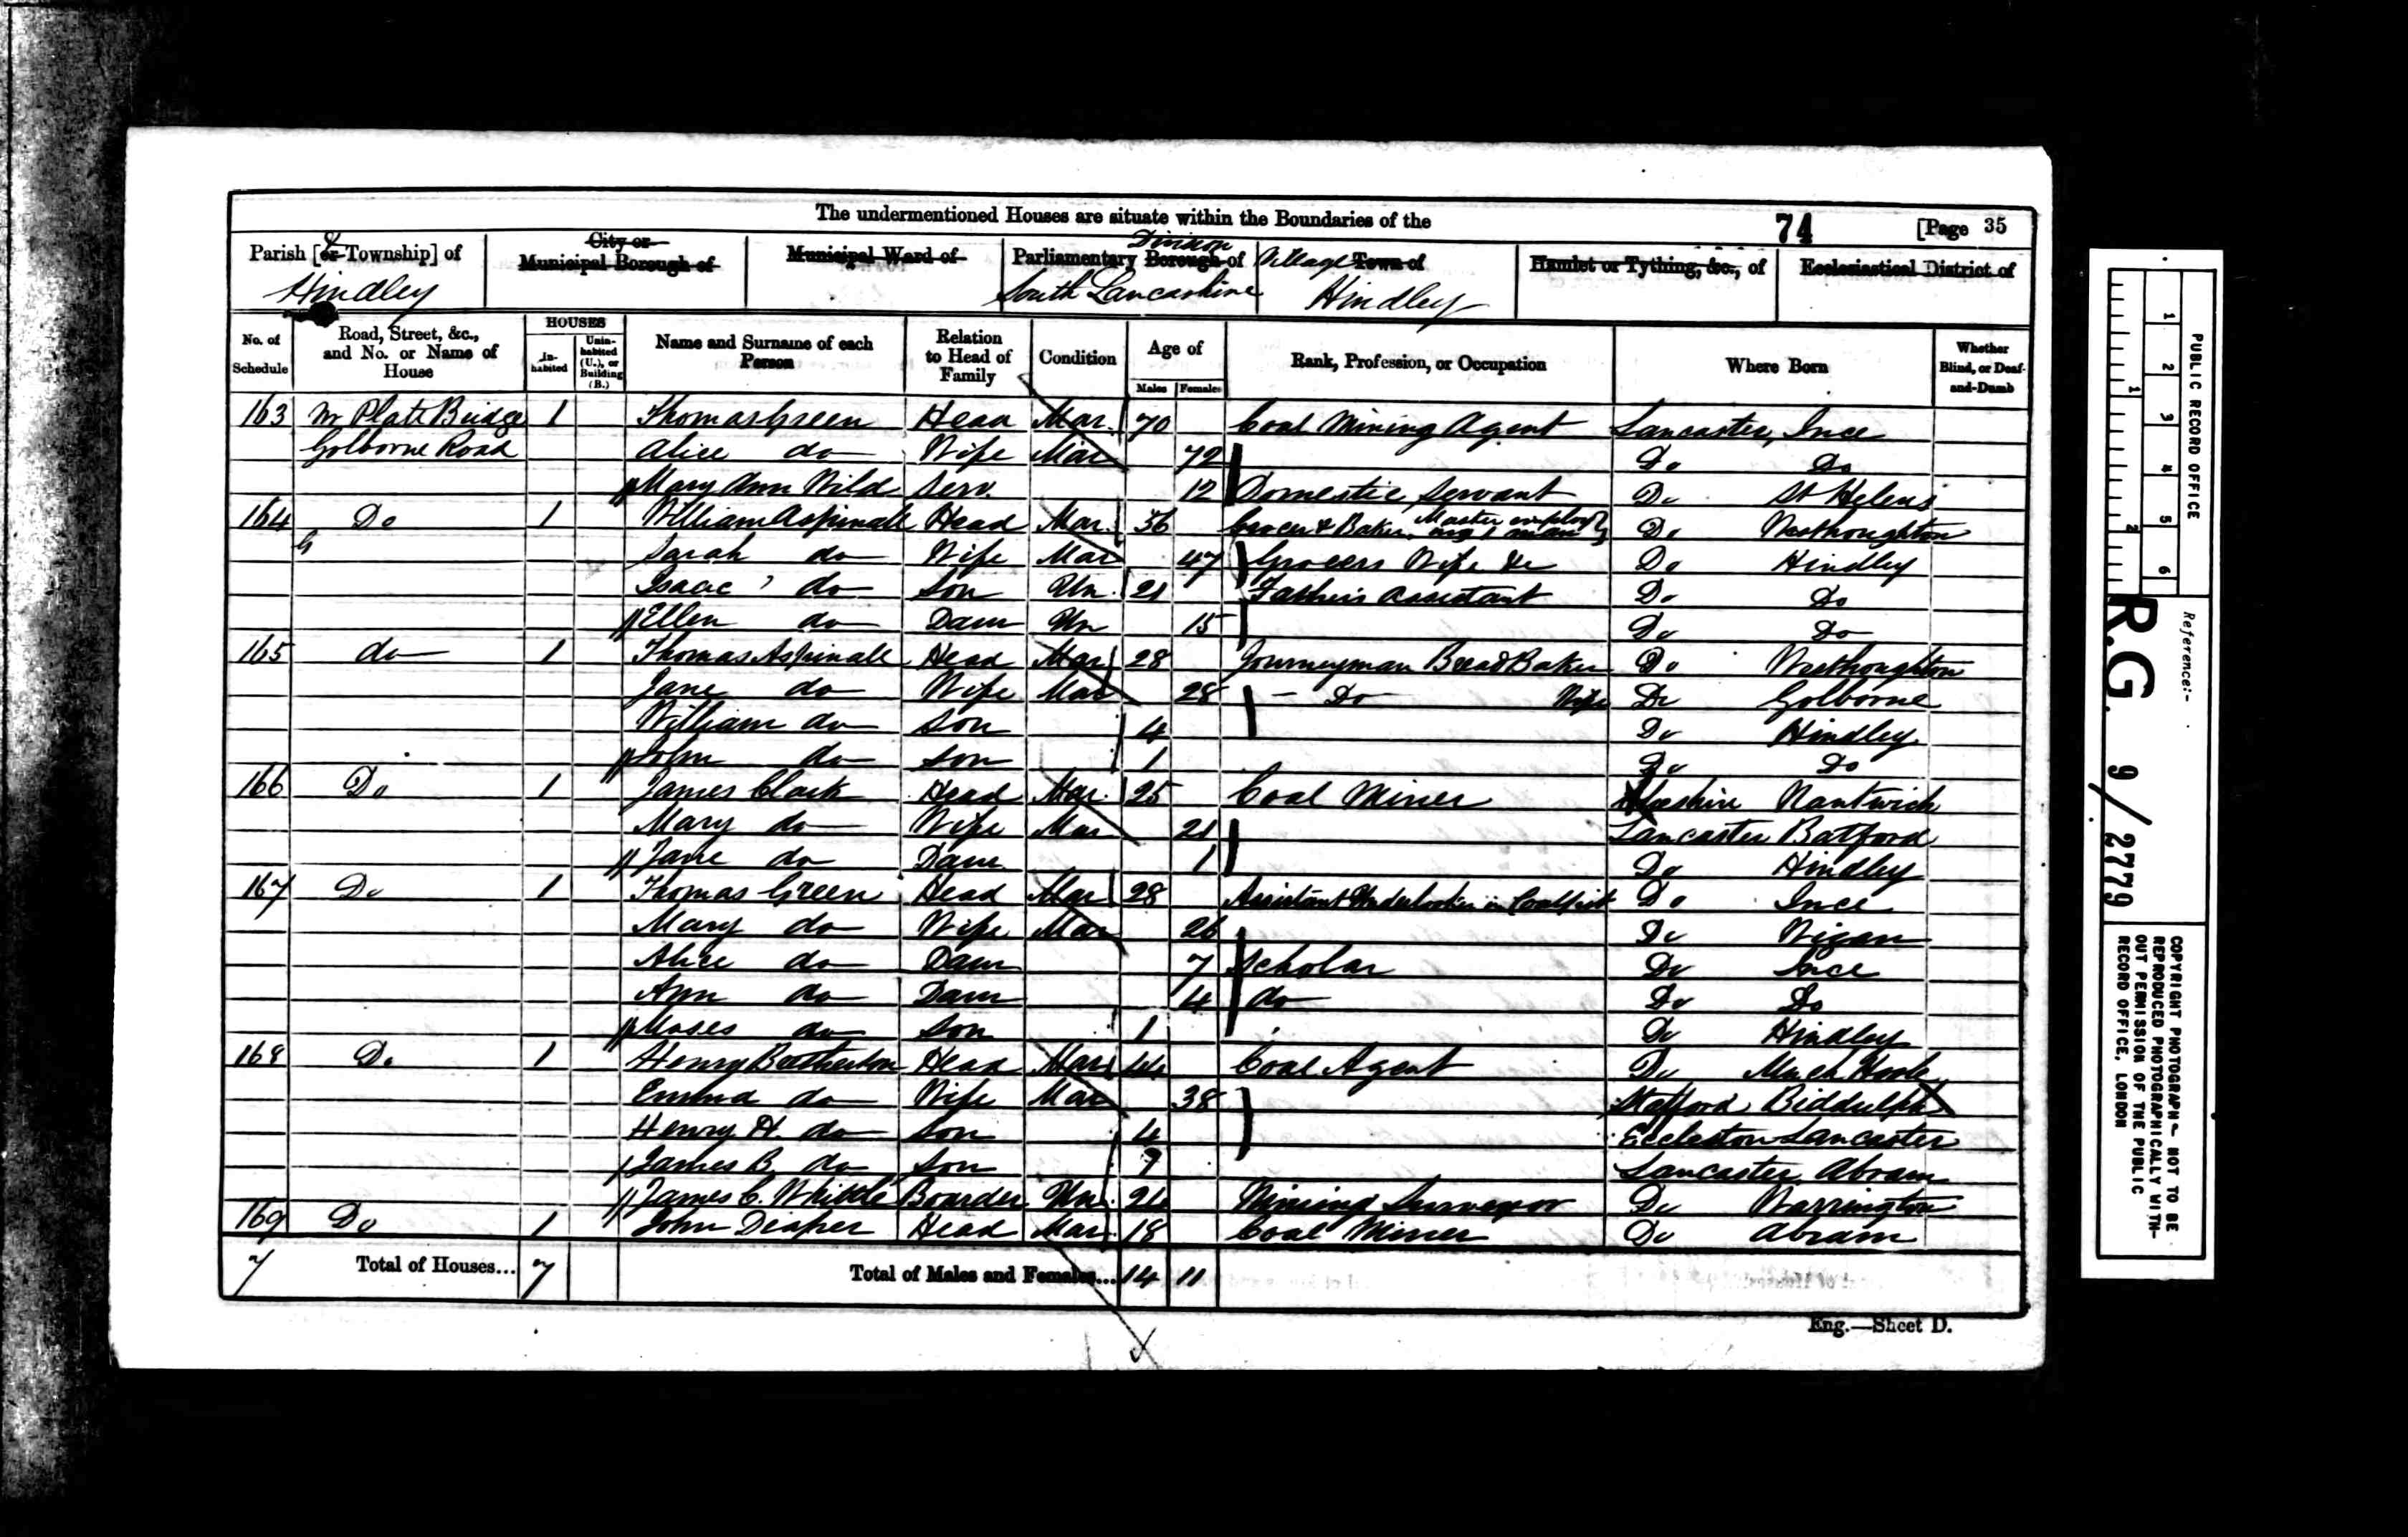 The undermentioned Houses are situate within the Boundaries of the
74 [Page 35
Parish [or Township] of & City or Municipal Borough of Municipal Ward of Parliamentary Borough of Division Village Town of Hamlet or Tything, &c., of Ecclesiastical District of
Hindley South Lancashire Hindley
No. of Schedule Road, Street, &c., and No. or Name of House HOUSES In-habited Unin-habited (U.), or Building (B.) Name and Surname of each Person Relation to Head of Family Condition Age of Males Females Rank, Profession, or Occupation Where Born Whether Blind, or Deaf-and-Dumb
163 Nr Platt Bridge 1 Thomas Green Head Mar. 70 Coal Mining Agent Lancaster, Ince
Golborne Road Alice do Wife Mar 72 Do Do
Mary Ann Wild Serv. 12 Domestic Servant Do St Helens
164 Do 1 William Aspinall Head Mar. 56 Grocer & Baker Master employing 1 man Do Westhoughton
Sarah do Wife Mar 47 Grocers Wife &c Do Hindley
Isaac do Son Un. 21 Father's assistant Do Do
Ellen do Daur Un 15 Do Do
165 do 1 Thomas Aspinall Head Mar 28 Journeyman Bread Baker Do Westhoughton
Jane do Wife Mar 28 Do Wife Do Golborne
William do Son 4 Do Hindley
John do Son 1 Do Do
166 Do 1 James Clark Head Mar. 25 Coal Miner Cheshire Nantwich
Mary do Wife Mar 21 Lancaster
Jane do Daur 1 Do Hindley
167 Do 1 Thomas Green Head Mar 28 Assistant Underlooker in Coalpit Do Ince
Mary do Wife Mar 26 Do Wigan
Alice do Daur 7 Scholar Do Ince
Ann do Daur 4 do Do Do
Moses do Son 1 Do Hindley
168 Do 1 Henry Brotherton Head Mar 44 Coal Agent Do Much Hoole
Emma do Wife Mar 38 Stafford Biddulph
Henry H. do Son 4 Eccleston Lancaster
James B do Son Lancaster Abram
James C. Whittle Boarder Un 24 Mining Surveyor Do Warrington
169 Do 1 John Draper Head Mar. 18 Coal Miner Do Abram
7 Total of Houses... 7 Total of Males and Females... 14 11
Eng.—Sheet D.
PUBLIC RECORD OFFICE
1 2 3 4 5 6
1 2
Reference:-
R.G. 9/2779
COPYRIGHT PHOTOGRAPH - NOT TO BE
REPRODUCED PHOTOGRAPHICALLY WITH-
OUT PERMISSION OF THE PUBLIC
RECORD OFFICE, LONDON